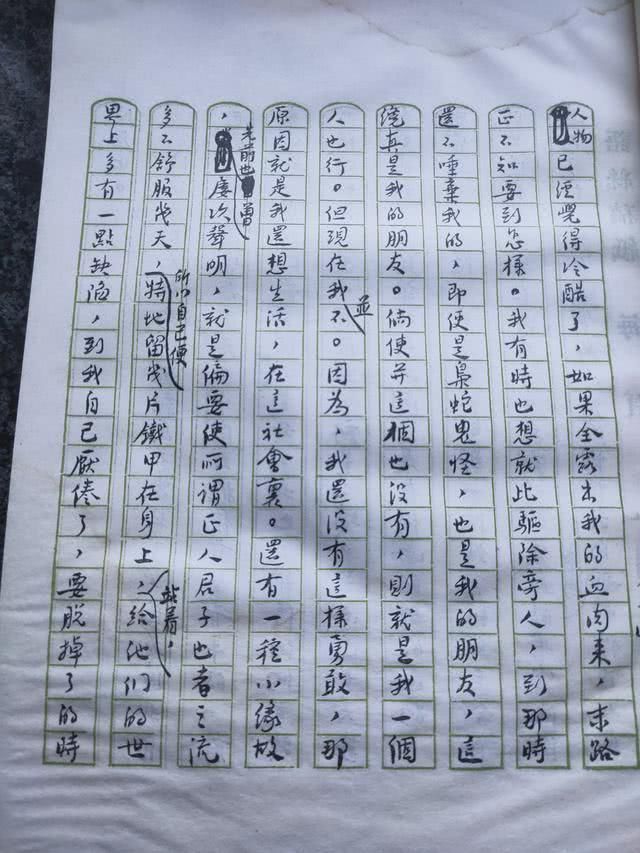 人物已經覺得冷酷了，如果全露出我的血肉來，末路
正不知要到怎樣。我有時也想就此驅除旁人，到那時
還不唾棄我的，即使是梟蛇鬼怪，也是我的朋友，這
纔真是我的朋友。倘使并這個也沒有，則就是我一個
人也行。但現在我並不。因為，我還沒有這樣勇敢，那
原因就是我還想生活，在這社會裏。還有一種小緣故
，先前也曾屢次聲明，就是偏要使所謂正人君子也者之流
多不舒服幾天，所以自己便特地留幾片鐵甲在身上，站着，給他们的世
界上多有一點缺陷，到我自己厭倦了，要脫掉了的時